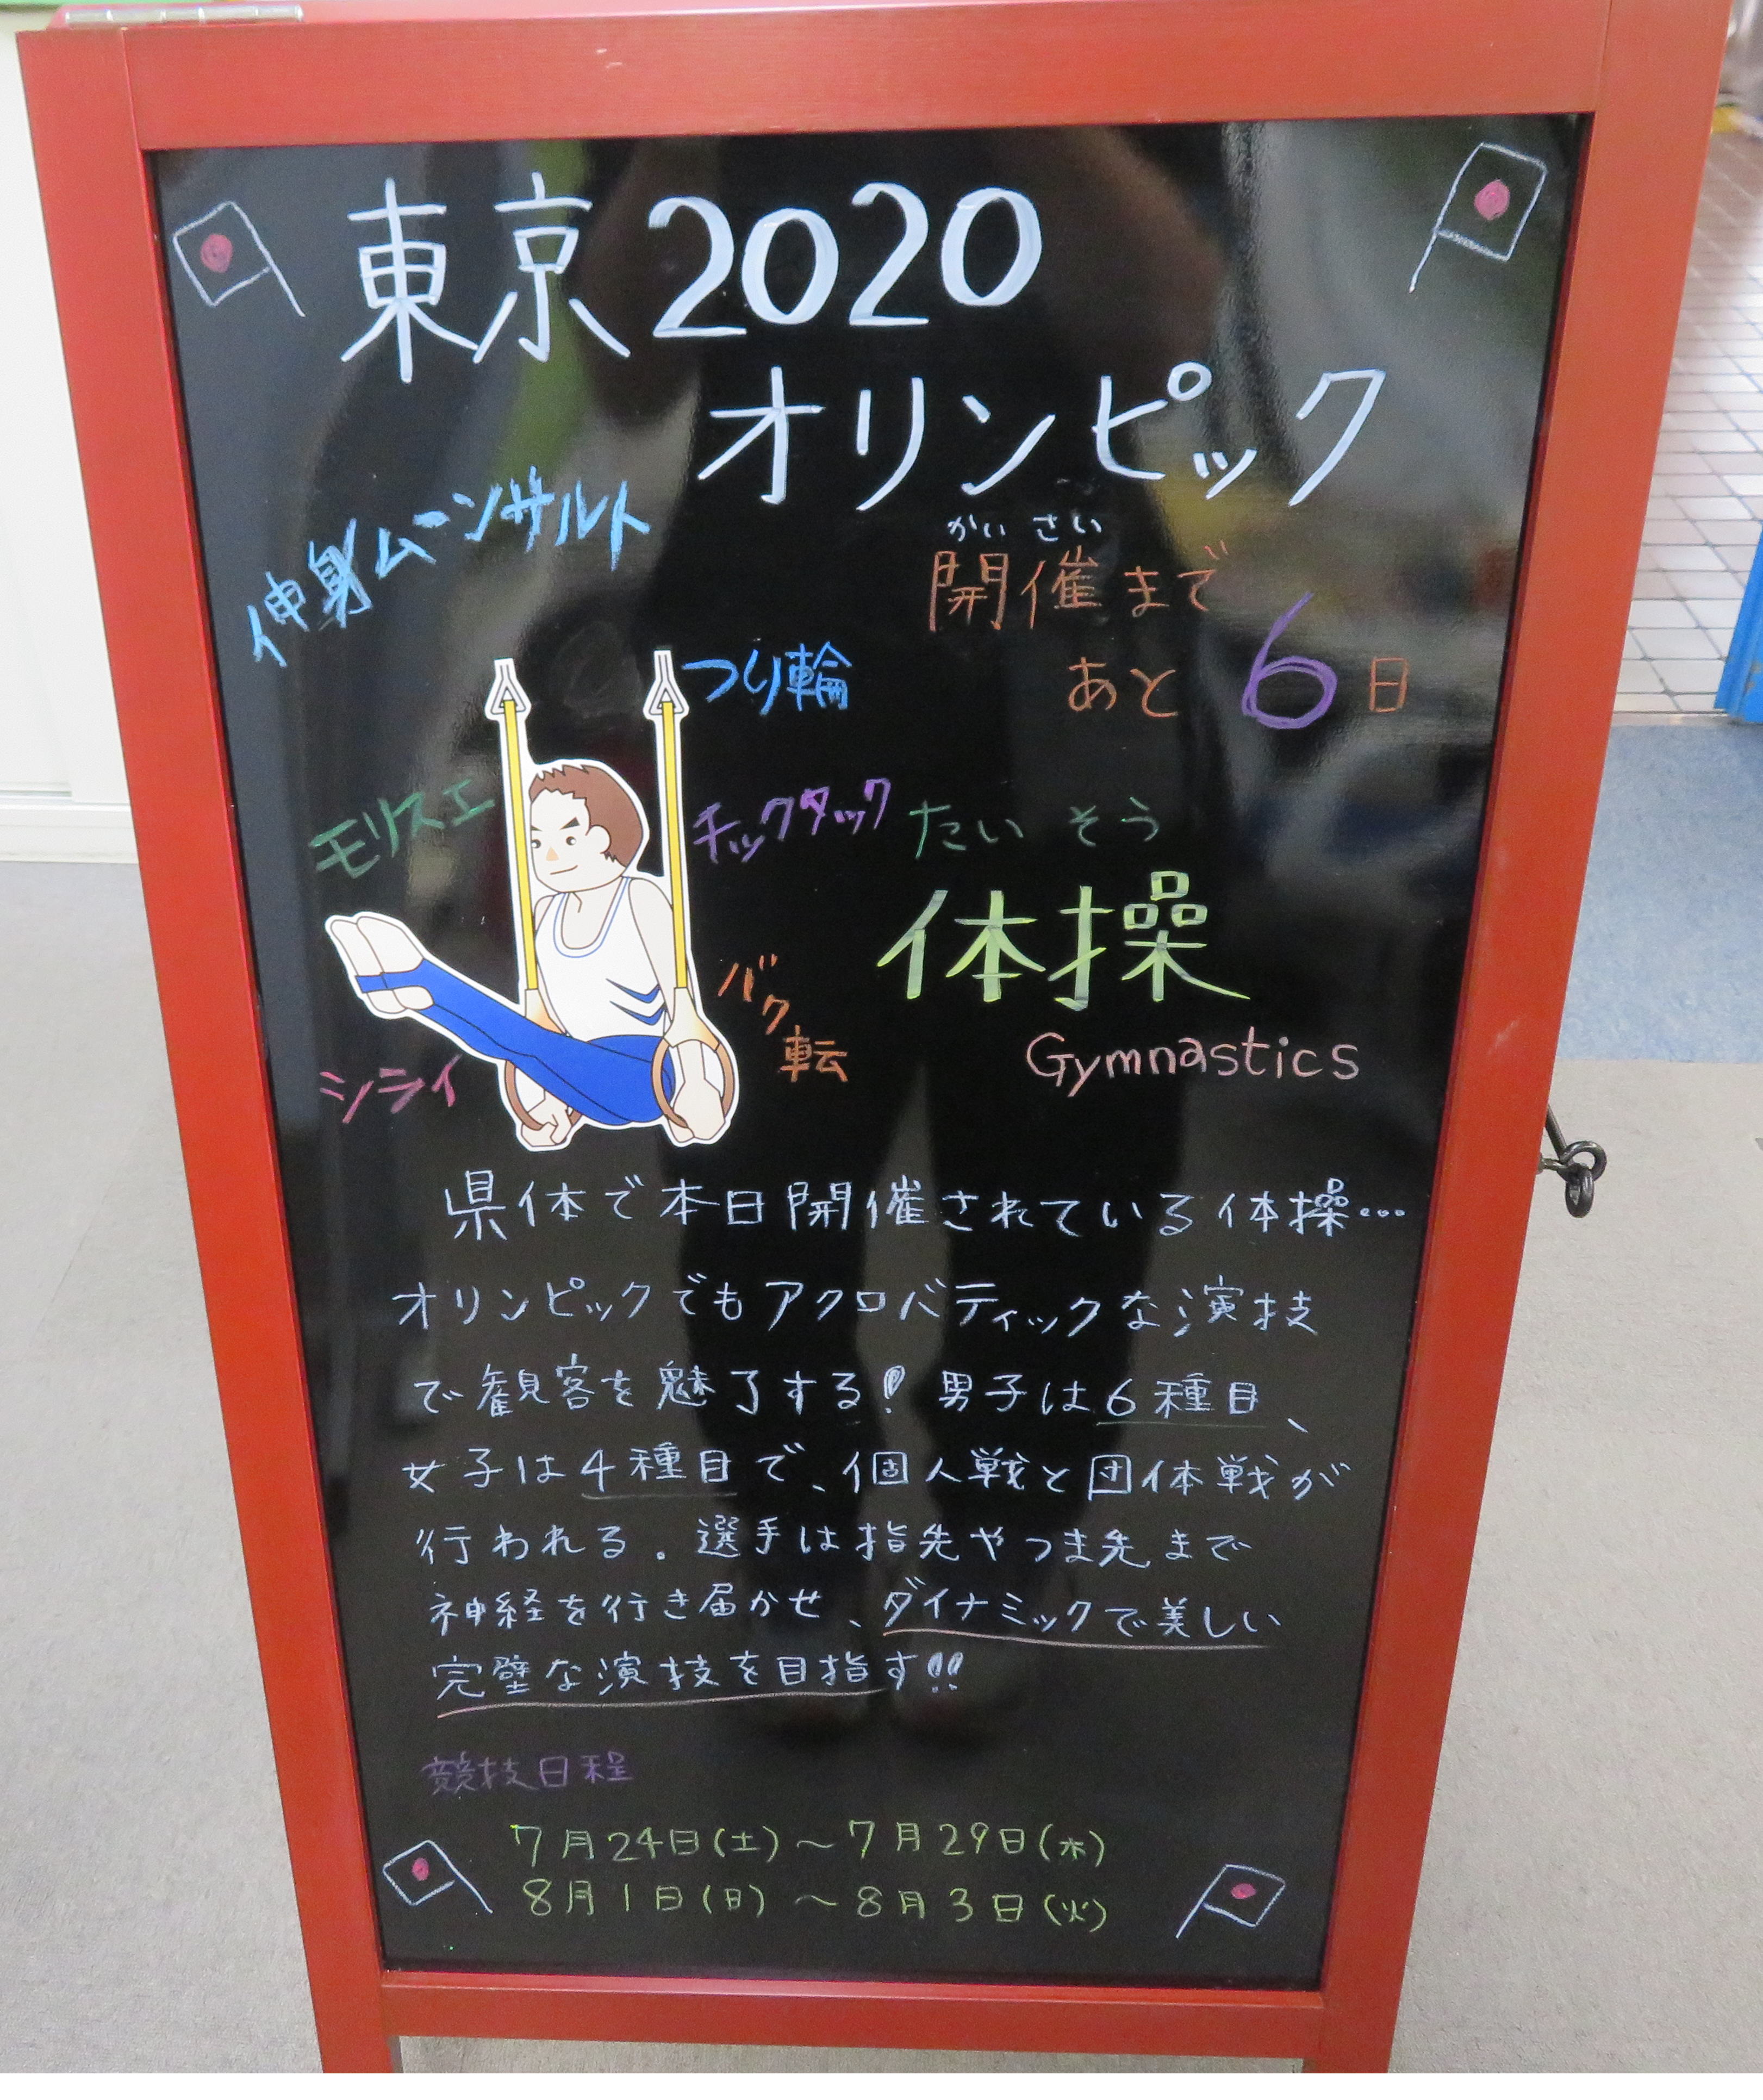 東京2020
オリンピック
伸身ムーンサルト
かいさい
開催まで
あと6日
つり輪
モリスエ
チックタック
たいそう
体操
バク転
Gymnastics
シライ
県体で本日開催されている体操…
オリンピックでもアクロバティックな演技
で観客を魅了する! 男子は6種目、
女子は4種目で、個人戦と団体戦が
行われる。選手は指先やつま先まで
神経を行き届かせ、ダイナミックで美しい
完璧な演技を目指す!!
競技日程
7月24日(土)~7月29日(木)
8月1日(日)~8月3日(火)